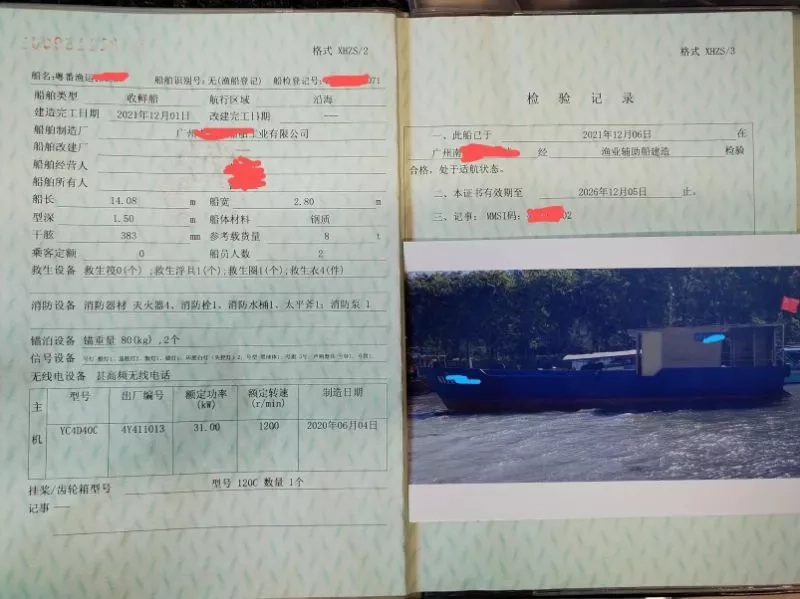 格式 XHZS/2
船名:粤番渔运 船舶识别号:无(渔船登记) 船检登记号: 071
船舶类型 收鲜船 航行区域 沿海
建造完工日期 2021年12月01日 改建完工日期 ---
船舶制造厂 广州 工业有限公司
船舶改建厂 ---
船舶经营人
船舶所有人
船长 14.08 m 船宽 2.80 m
型深 1.50 m 船体材料 钢质
干舷 383 mm 参考载货量 8 t
乘客定额 0 船员人数 2
救生设备 救生筏0(个) ;救生浮具1(个);救生圈1(个);救生衣4(件)
消防设备 消防器材 灭火器4、消防栓1; 消防水桶1、太平斧1; 消防泵 1
锚泊设备 锚重量 80(kg) ,2个
信号设备
无线电设备 甚高频无线电话
主机 型号 出厂编号 额定功率(kW) 额定转速(r/min) 制造日期
YC4D40C 4Y411013 31.00 1200 2020年06月04日
挂桨/齿轮箱型号 型号 120C 数量 1个
记事 ---
格式 XHZS/3
检验记录
一、此船已于 2021年12月06日 在
广州南 经 渔业辅助船建造 检验
合格，处于适航状态。
二、本证书有效期至 2026年12月05日 止。
三、记事: MMSI码: 02